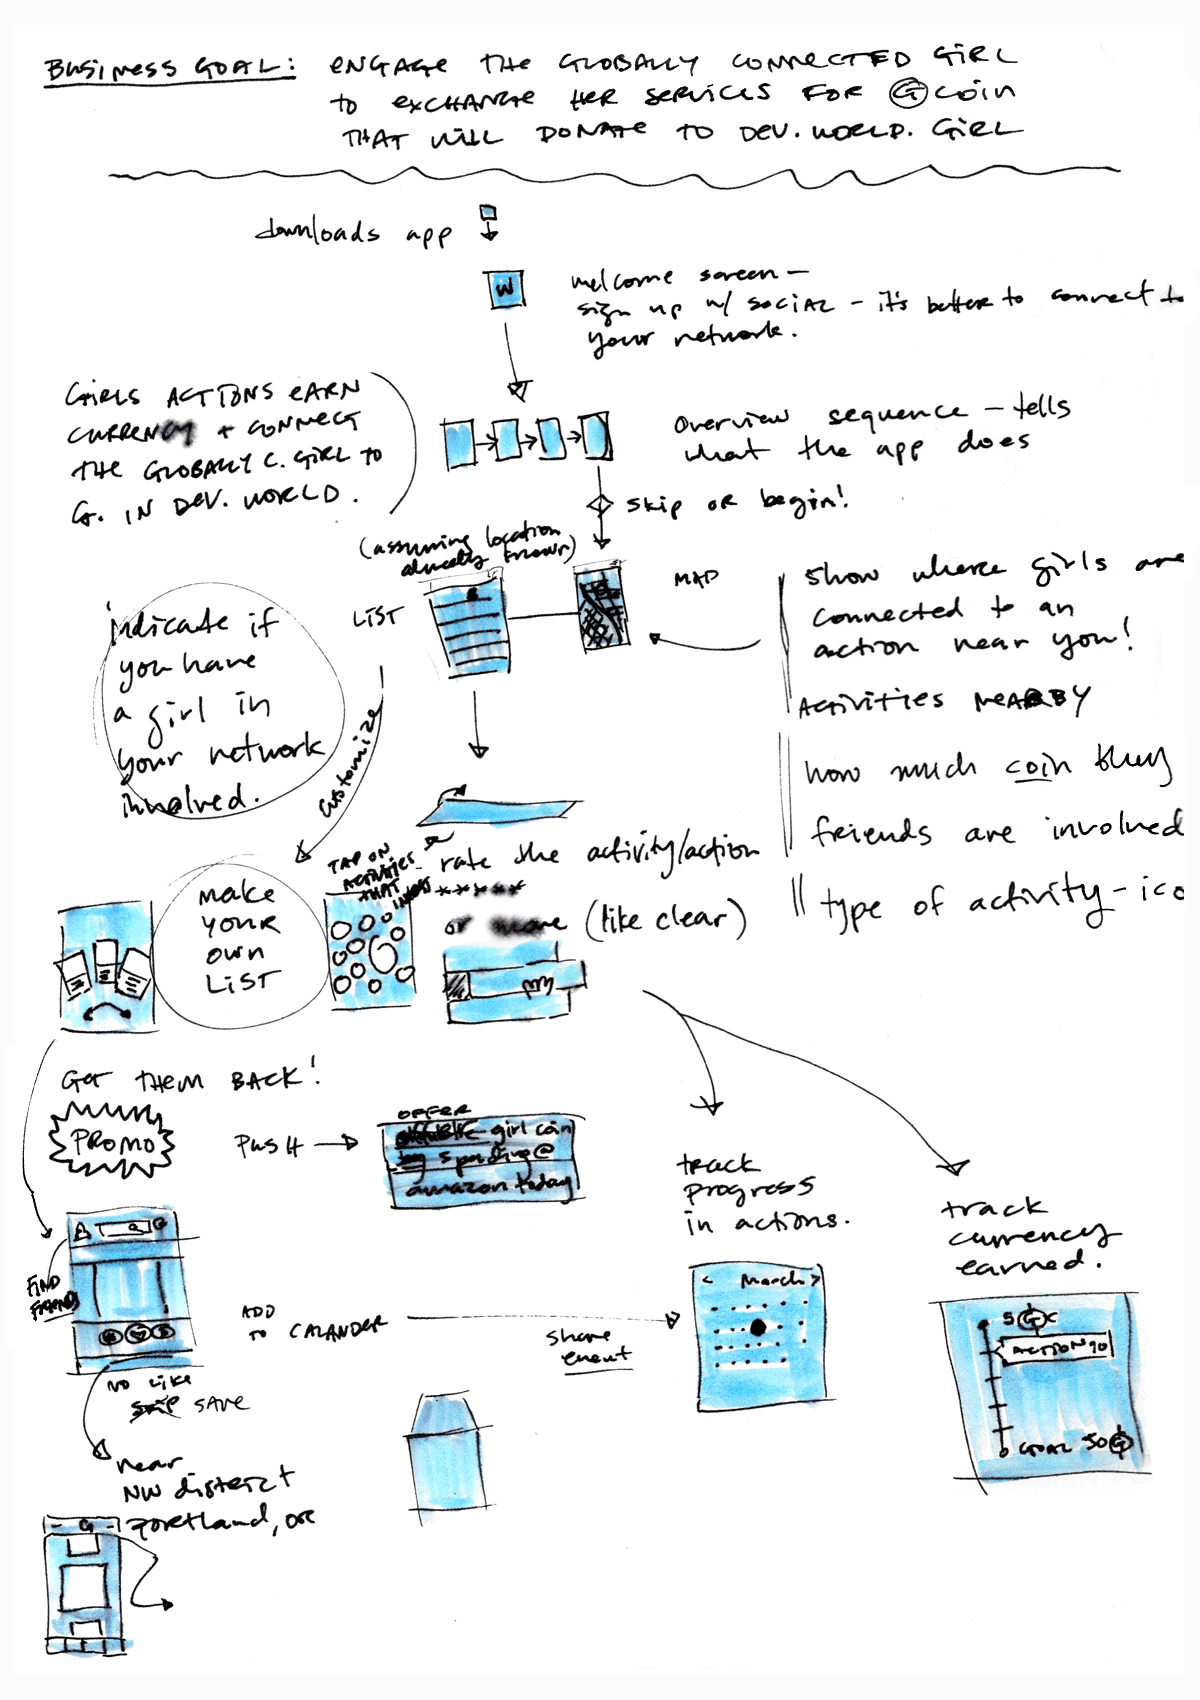 BUSINESS GOAL: ENGAGE THE GLOBALLY CONNECTED GIRL
TO EXCHANGE HER SERVICES FOR G COIN
THAT WILL DONATE TO DEV. WORLD. GIRL
downloads app
W
welcome screen –
sign up w/ SOCIAL – it's better to connect to
your network.
GIRLS ACTIONS EARN
CURRENCY + CONNECT
THE GLOBALLY C. GIRL TO
G. IN DEV. WORLD.
Overview sequence – tells
what the app does
skip OR begin!
(assuming location
already known)
LIST
MAP
show where girls are
connected to an
action near you!
ACTIVITIES NEARBY
how much coin they
friends are involved
type of activity – ico
indicate if
you have
a girl in
your network
involved.
customize
MAKE
YOUR
OWN
LIST
TAP ON
ACTIVITIES
THAT
rate the activity/action
*****
or (like clear)
GET THEM BACK!
PROMO
PUSH
OFFER
girl coin
spending @
amazon today
track
progress
in actions.
track
currency
earned.
FIND
FRIENDS
ADD
TO CALANDER
share
event
< March >
5 G C
ACTION 90
GOAL 50 G
NO LIKE
SAVE
near
NW district
portland, OR
- G -